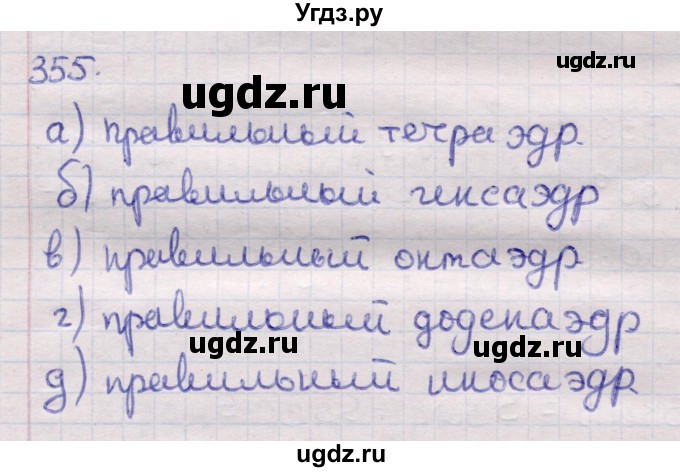 Угдз.ру
355.
ugdz.ru
а) правильный тетраэдр.
б) правильный гексаэдр
в) правильный октаэдр
г) правильный додекаэдр
ugdz.ru
ugdz.ru
д) правильный икосаэдр
ugdz.ru